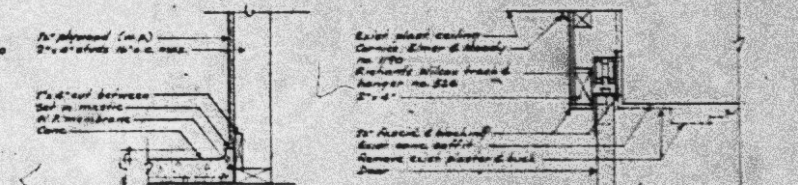 ½" plywood (w.p.)
2"x 4" studs 16" o.c. max.
1"x 4" cut between
Set in mastic
W.P. membrane
Conc.
Exist plast ceiling
Cornice, & Moody
no. 1190
Richards Wilcox track &
hanger no. 526
2"x 4"
½" fascia & blocking
Exist conc. soffit
Remove exist plaster & buck
Door